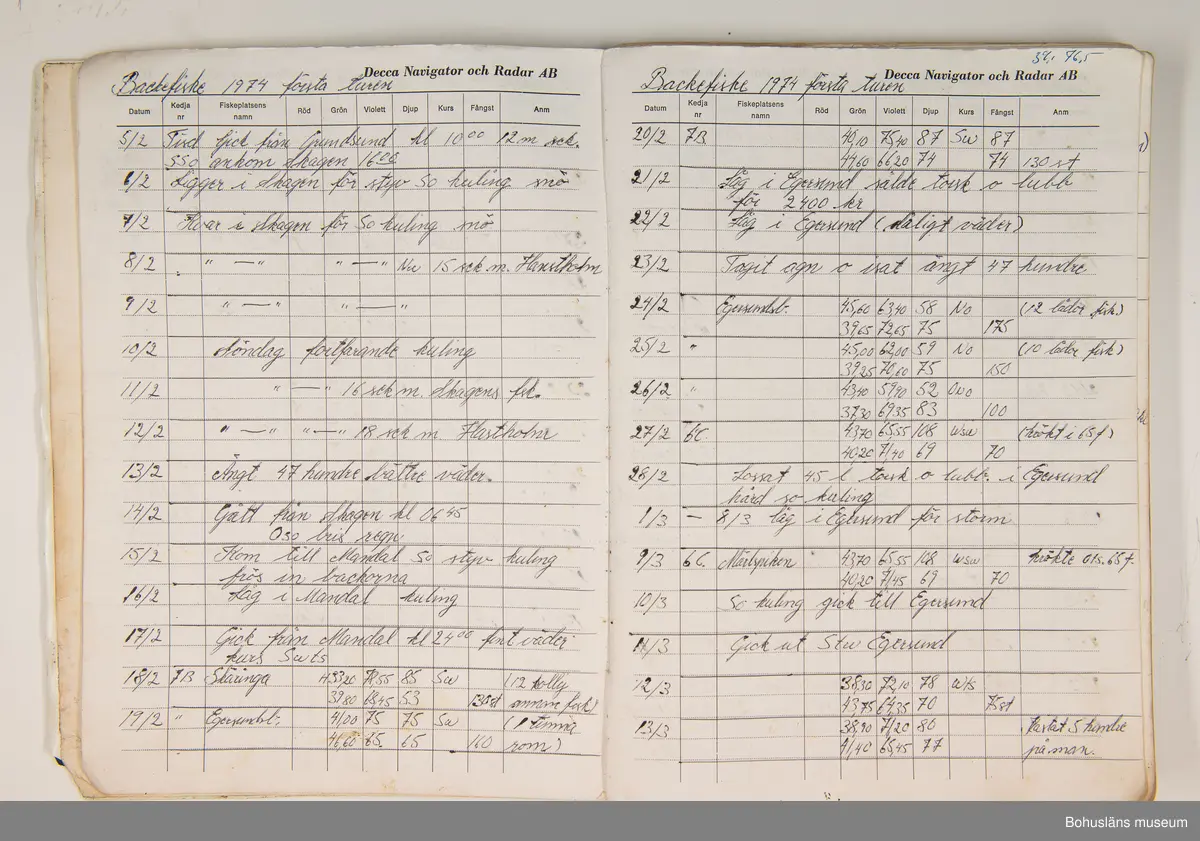 Decca Navigator och Radar AB
Backefiske 1974 första turen
Datum Kedja nr Fiskeplatsens namn Röd Grön Violett Djup Kurs Fångst Anm
5/2 Tisd gick från Grundsund kl 10 00 12 m sek.
SSO ankom Skagen 16 00
6/2 Ligger i Skagen för styv So kuling snö
7/2 Kvar i Skagen för So kuling snö
8/2 " — " " — " Nw 15 sek m. Hanstholm
9/2 " — " " — "
10/2 Söndag fortfarande kuling
11/2 " — " 16 sek m. Skagens fsk.
12/2 " — " " — " 18 sek m Hastholm
13/2 Ängt 47 hundre bättre väder.
14/2 Gått från Skagen kl 06 45
Oso bris regn
15/2 Kom till Mandal So styv kuling
frös in backorna
16/2 Låg i Mandal kuling
17/2 Gick från Mandal kl 24 00 fint väder
kurs Swts
18/2 7B Skäringa 43,20 78,55 85 Sw (12 kolly
39,80 68,45 53 130st annan fisk)
19/2 " Egersundsb. 41,00 75 75 Sw (1 tunna
46,60 65. 65 160 rom)
39,. 76,5
Decca Navigator och Radar AB
Backefiske 1974 första turen
Datum Kedja nr Fiskeplatsens namn Röd Grön Violett Djup Kurs Fångst Anm
20/2 7B 40,10 75,40 87 Sw 87
44,60 66,20 74 74 130 st
21/2 Låg i Egersund sålde torsk o lubb
för 2400 kr
22/2 Låg i Egersund (dåligt väder)
23/2 Tagit agn o isat ängt 47 hundre
24/2 Egersundsb. 45,60 63,40 58 No (12 lådor fisk)
39,65 72,65 75 175
25/2 " 45,00 62,00 59 No (10 lådor fisk)
39,25 70,60 75 150
26/2 " 43,40 59,90 52 Ono
37,30 69,35 83 100
27/2 6C. 43,70 65,55 108 wsw (krökt i 65 f)
40,20 71,40 69 70
28/2 Lossat 45 l torsk o lubb. i Egersund
hård so kuling
1/3 — 8/3 låg i Egersund för storm
9/3 6C. 43,70 65,55 108 wsw krökte ots. 65 f.
40,20 71,45 69 70
10/3 So kuling gick till Egersund
11/3 Gick ut Stw Egersund
12/3 38,30 72,10 78 wts
43,75 64,35 70 75st
13/3 38,90 71,20 80 kastat 5 hundre
41,40 65,45 77 på man.
Bohusläns museum